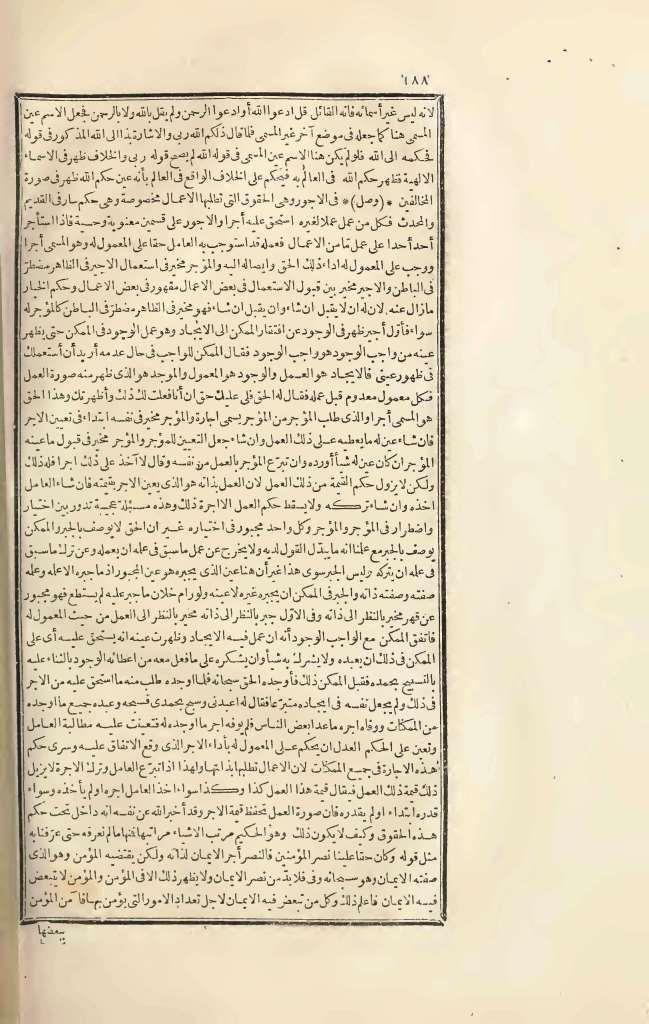 ١٨٨
لانه ليس غير أسمائه فانه القائل قل ادعوا الله أو ادعوا الرحمن ولم يقل بالله ولا بالرحمن فجعل الاسم عين
المسمى هنا كما جعله فى موضع آخر غير المسمى فلما قال ذلكم الله ربى والاشارة بذا الى الله المذكور فى قوله
فحكمه الى الله فلو لم يكن هنا الاسم عين المسمى فى قوله الله لم يصح قوله ربى والخلاف ظهر فى الاسماء
الالهية فظهر حكم الله فى العالم به فيحكم على الخلاف الواقع فى العالم بأنه عين حكم الله ظهر فى صورة
المخالفين * (وصل) * فى الاجور وهى الحقوق التى تطلبها الاعمال مخصوصة وهى حكم سار فى القديم
والمحدث فكل من عمل عملا لغيره استحق عليه أجرا والاجور على قسمين معنوية وحسية فاذا استأجر
أحد أحدا على عمل مّا من الاعمال فعمله فقد استوجب به العامل حقا على المعمول له وهو المسمى أجرا
ووجب على المعمول له اداء ذلك الحق وايصاله اليه والمؤجر مخير فى استعمال الاجير فى الظاهر مضطرّ
فى الباطن والاجير مخير بين قبول الاستعمال فى بعض الاعمال مقهور فى بعض الاعمال وحكم الخيار
مازال عنه لان له ان لا يقبل ان شاء وان يقبل ان شاء فهو مخير فى الظاهر مضطرّ فى الباطن كالمؤجر له
سواء فأوّل أجير ظهر فى الوجود عن افتقار الممكن الى الايجاد وهو عمل الوجود فى الممكن حتى يظهر
عينه من واجب الوجود هو واجب الوجود فقال الممكن للواجب فى حال عدمه أريد أن أستعملك
فى ظهور عينى فالايجاد هو العمل والوجود هو المعمول والموجد هو الذى ظهر منه صورة العمل
فكل معمول معدوم قبل عمله فقال له الحق فلى عليك حق ان أنا فعلت لك ذلك وأظهرتك وهذا الحق
هو المسمى أجرا والذى طلب المؤجر من المؤجر يسمى اجارة والمؤجر مخير فى نفسه ابتداء فى تعيين الاجر
فان شاء عين له ما يعطيه على ذلك العمل وان شاء جعل التعيين للمؤجر والمؤجر مخير فى قبول ما عينه
المؤجر ان كان عين له شيأ أو رده وان تبرّع المؤجر بالعمل من نفسه وقال لا آخذ على ذلك اجرا فله ذلك
ولكن لا يزول حكم القيمة من ذلك العمل لان العمل بذاته هو الذى يعين الاجر بقيمته فان شاء العامل
اخذه وان شاء تركه ولا يسقط حكم العمل الا اجرة ذلك وهذه مسئلة عجيبة تدور بين اختيار
واضطرار فى المؤجر والمؤجر وكل واحد مجبور فى اختياره غير ان الحق لا يوصف بالجبر والممكن
يوصف بالجبر مع علمنا انه ما يبدّل القول لديه ولا يخرج عن عمل ما سبق فى علمه ان يعمله وعن ترك ما سبق
فى علمه ان يتركه وليس الجبر سوى هذا غير أن هنا عين الذى يجبره هو عين المجبور اذ ما جبره الا علمه وعلمه
صفته وصفته ذاته والجبر فى الممكن ان يجبره غيره لا عينه ولو رام خلاف ما جبر عليه لم يستطع فهو مجبور
عن قهر مخير بالنظر الى ذاته وفى الاوّل جبر بالنظر الى ذاته مخير بالنظر الى العمل من حيث المعمول له
فاتفق الممكن مع الواجب الوجود أنه ان عمل فيه الايجاد وظهرت عينه انه يستحق عليه أى على
الممكن فى ذلك ان يعبده ولا يشرك به شيأ وان يشكره على ما فعل معه من اعطائه الوجود بالثناء عليه
بالتسبيح بحمده فقبل الممكن ذلك فأوجده الحق سبحانه فلما اوجده طلب منه ما استحق عليه من الاجر
فى ذلك ولم يجعل نفسه فى ايجاده متبرّعا فقال له اعبدنى وسبح بحمدى فسبحه وعبده جميع ما اوجده
من الممكنات ووفاه اجره ما عدا بعض الناس فلم يوفه اجر ما اوجده له فتعينت عليه مطالبة العامل
وتعين على الحكم العدل ان يحكم على المعمول له بأداء الاجر الذى وقع الاتفاق عليه وسرى حكم
هذه الاجارة فى جميع الممكنات لان الاعمال تطلبها بذاتها ولهذا اذا تبرّع العامل وترك الاجرة لا يزيل
ذلك قيمة ذلك العمل فيقال قيمة هذا العمل كذا وكذا سواء اخذ العامل اجره او لم يأخذه وسواء
قدره ابتداء او لم يقدره فان صورة العمل تحفظ قيمة الاجر وقد أخبر الله عن نفسه انه داخل تحت حكم
هذه الحقوق وكيف لا يكون ذلك وهو الحكيم مرتب الاشياء مراتبها فنها ما لم نعرفه حتى عرّفنا به
مثل قوله وكان حقا علينا نصر المؤمنين فالنصر أجر الايمان لذاته ولكن يقتضيه المؤمن وهو الذى
صفته الايمان وهو سبحانه وفى فلا بدّ من نصر الايمان ولا يظهر ذلك الا فى المؤمن والمؤمن لا يتبعض
فيه الايمان فاعلم ذلك وكل من تبعض فيه الايمان لاجل تعداد الامور التى يؤمن بها فآمن المؤمن
ببعضها